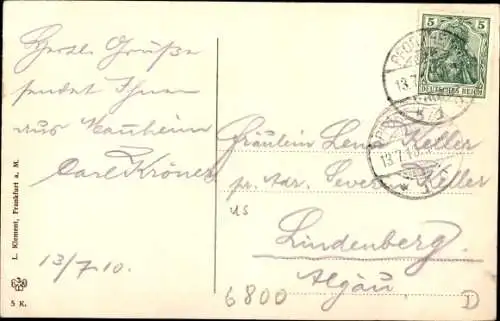 Herzl. Grüße
sendet Ihnen
aus Mannheim
Carl Kröner
13/7.10.
L. Klement, Frankfurt a. M.
5 K.
5 5
DEUTSCHES REICH
13.7.
13.7.10.
Fräulein Lena Keller
pr. Adr. Sever. Keller
us
Lindenberg.
Algäu
6800
D